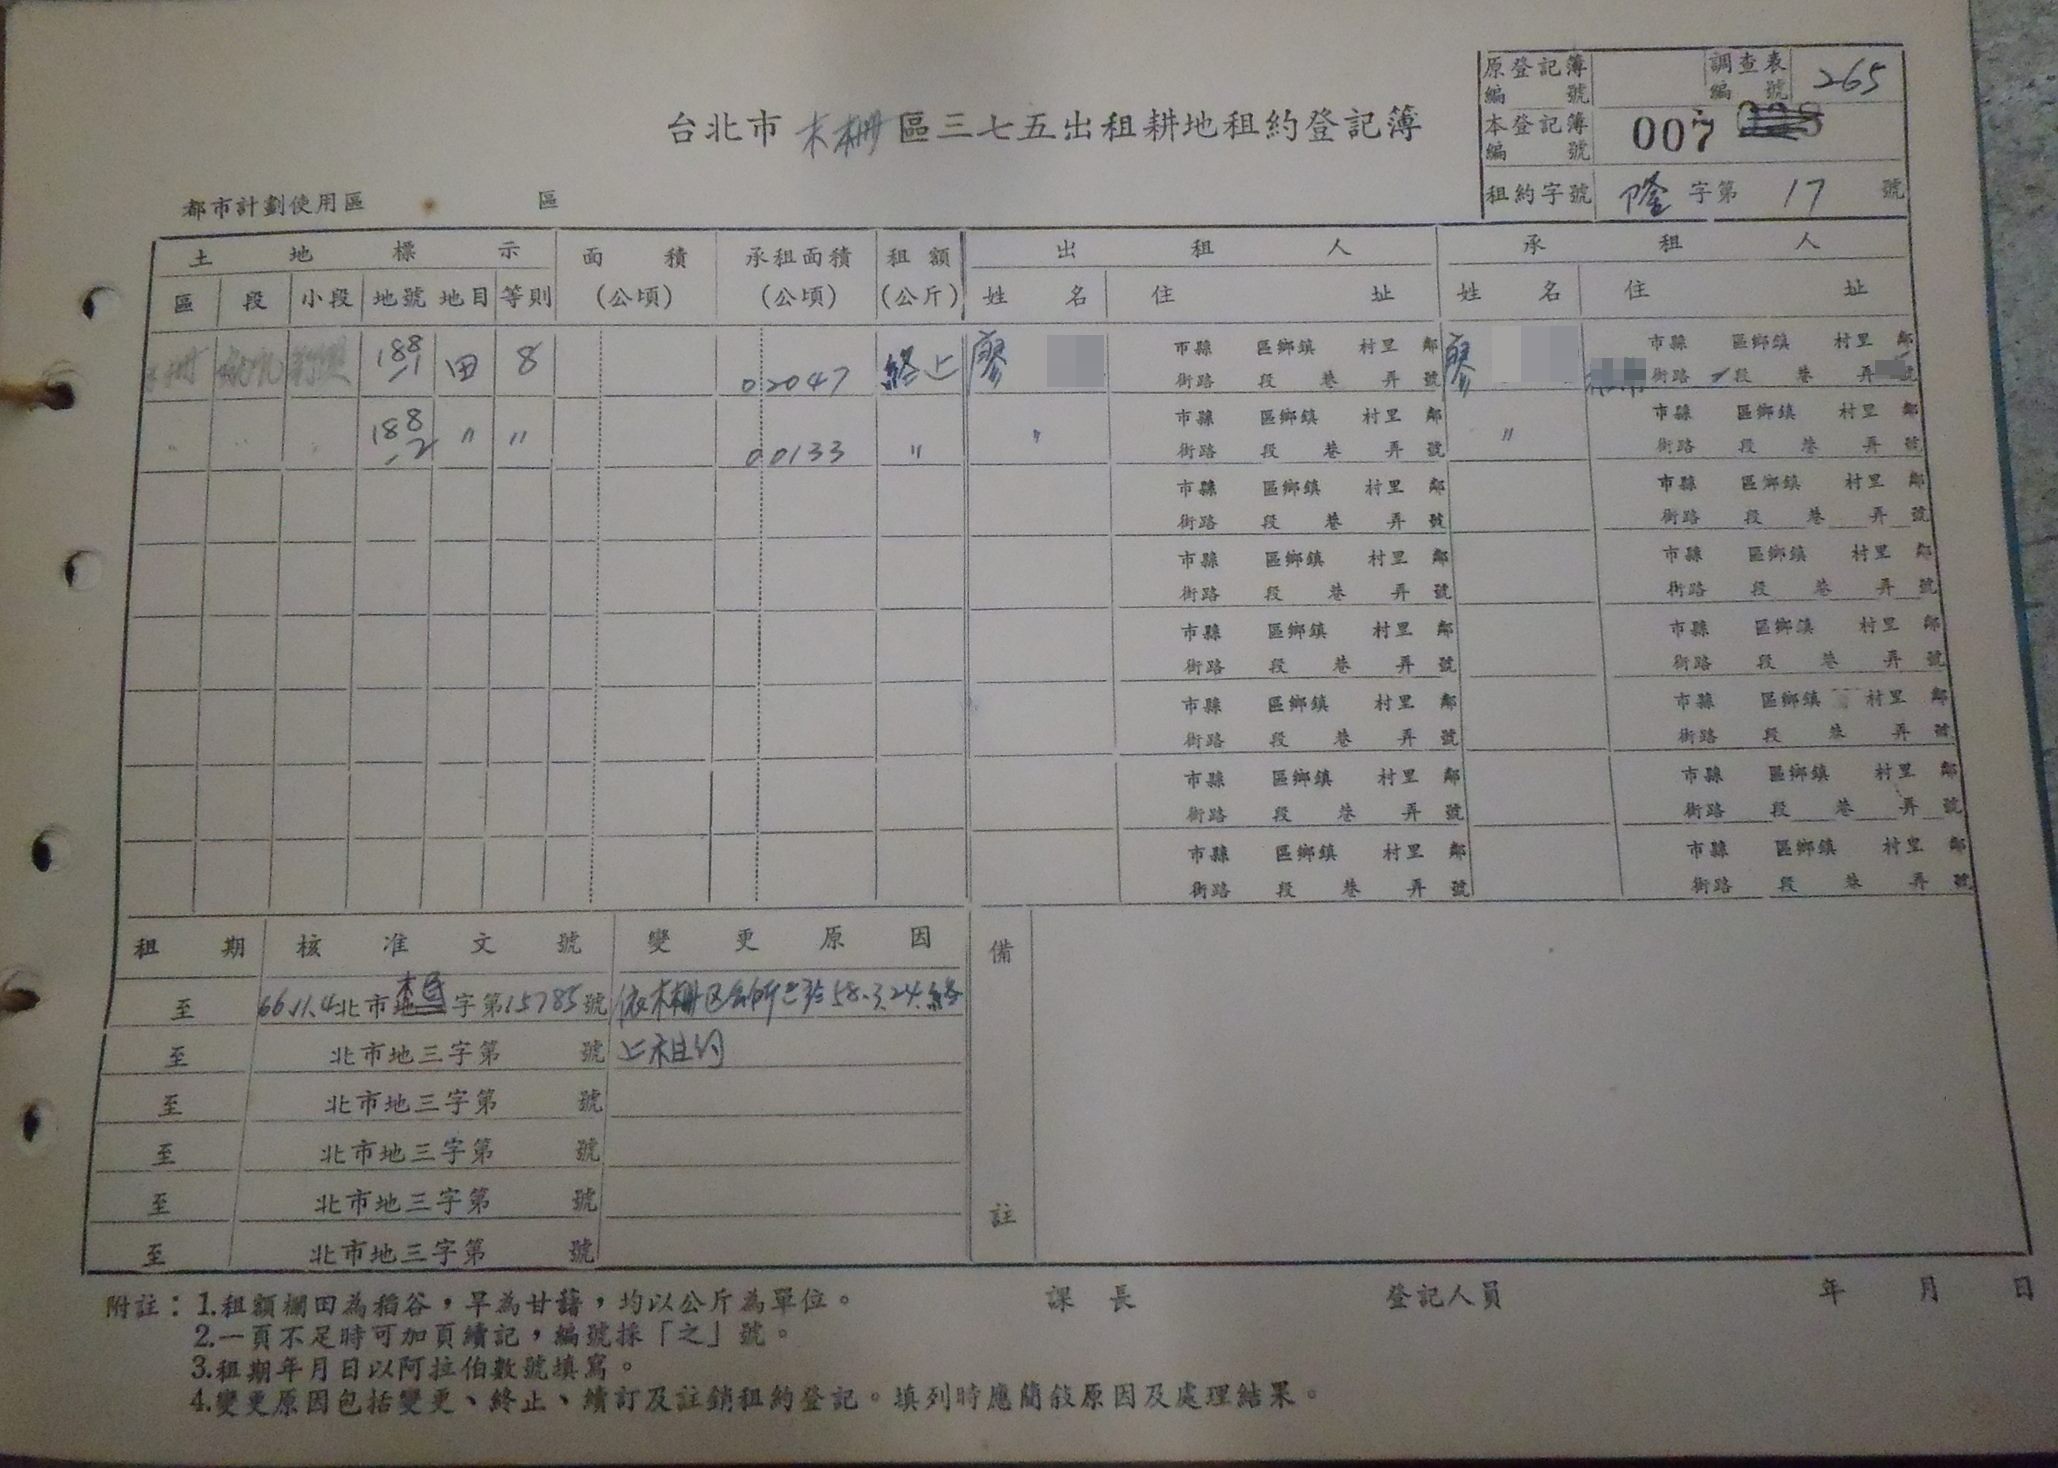 原登記簿編號 調查表編號 265
台北市木柵區三七五出租耕地租約登記簿
本登記簿編號 007
租約字號 隆字第 17 號
都市計劃使用區 區
土地標示 面積 承租面積 租額 出租人 承租人
區 段 小段 地號 地目 等則 (公頃) (公頃) (公斤) 姓名 住址 姓名 住址
188-1 田 8 0 2047 終止 廖 市縣 區鄉鎮 村里 鄰 廖 市縣 區鄉鎮 村里 鄰
街路 段 巷 弄 號 街路 段 巷 弄 號
〃 〃 〃 188-2 〃 〃 0 0133 〃 〃 市縣 區鄉鎮 村里 鄰 〃 市縣 區鄉鎮 村里 鄰
街路 段 巷 弄 號 街路 段 巷 弄 號
市縣 區鄉鎮 村里 鄰 市縣 區鄉鎮 村里 鄰
街路 段 巷 弄 號 街路 段 巷 弄 號
市縣 區鄉鎮 村里 鄰 市縣 區鄉鎮 村里 鄰
街路 段 巷 弄 號 街路 段 巷 弄 號
市縣 區鄉鎮 村里 鄰 市縣 區鄉鎮 村里 鄰
街路 段 巷 弄 號 街路 段 巷 弄 號
市縣 區鄉鎮 村里 鄰 市縣 區鄉鎮 村里 鄰
街路 段 巷 弄 號 街路 段 巷 弄 號
市縣 區鄉鎮 村里 鄰 市縣 區鄉鎮 村里 鄰
街路 段 巷 弄 號 街路 段 巷 弄 號
市縣 區鄉鎮 村里 鄰 市縣 區鄉鎮 村里 鄰
街路 段 巷 弄 號 街路 段 巷 弄 號
租期 核准文號 變更原因 備註
至 66.11.4北市木民字第15785號 依木柵区公所已於58.3.24.終
至 北市地三字第 號 止租約
至 北市地三字第 號
至 北市地三字第 號
至 北市地三字第 號
至 北市地三字第 號
附註：1.租額欄田為稻谷，旱為甘藷，均以公斤為單位。 課長 登記人員 年 月 日
2.一頁不足時可加頁續記，編號採「之」號。
3.租期年月日以阿拉伯數號填寫。
4.變更原因包括變更、終止、續訂及註銷租約登記。填列時應簡敍原因及處理結果。